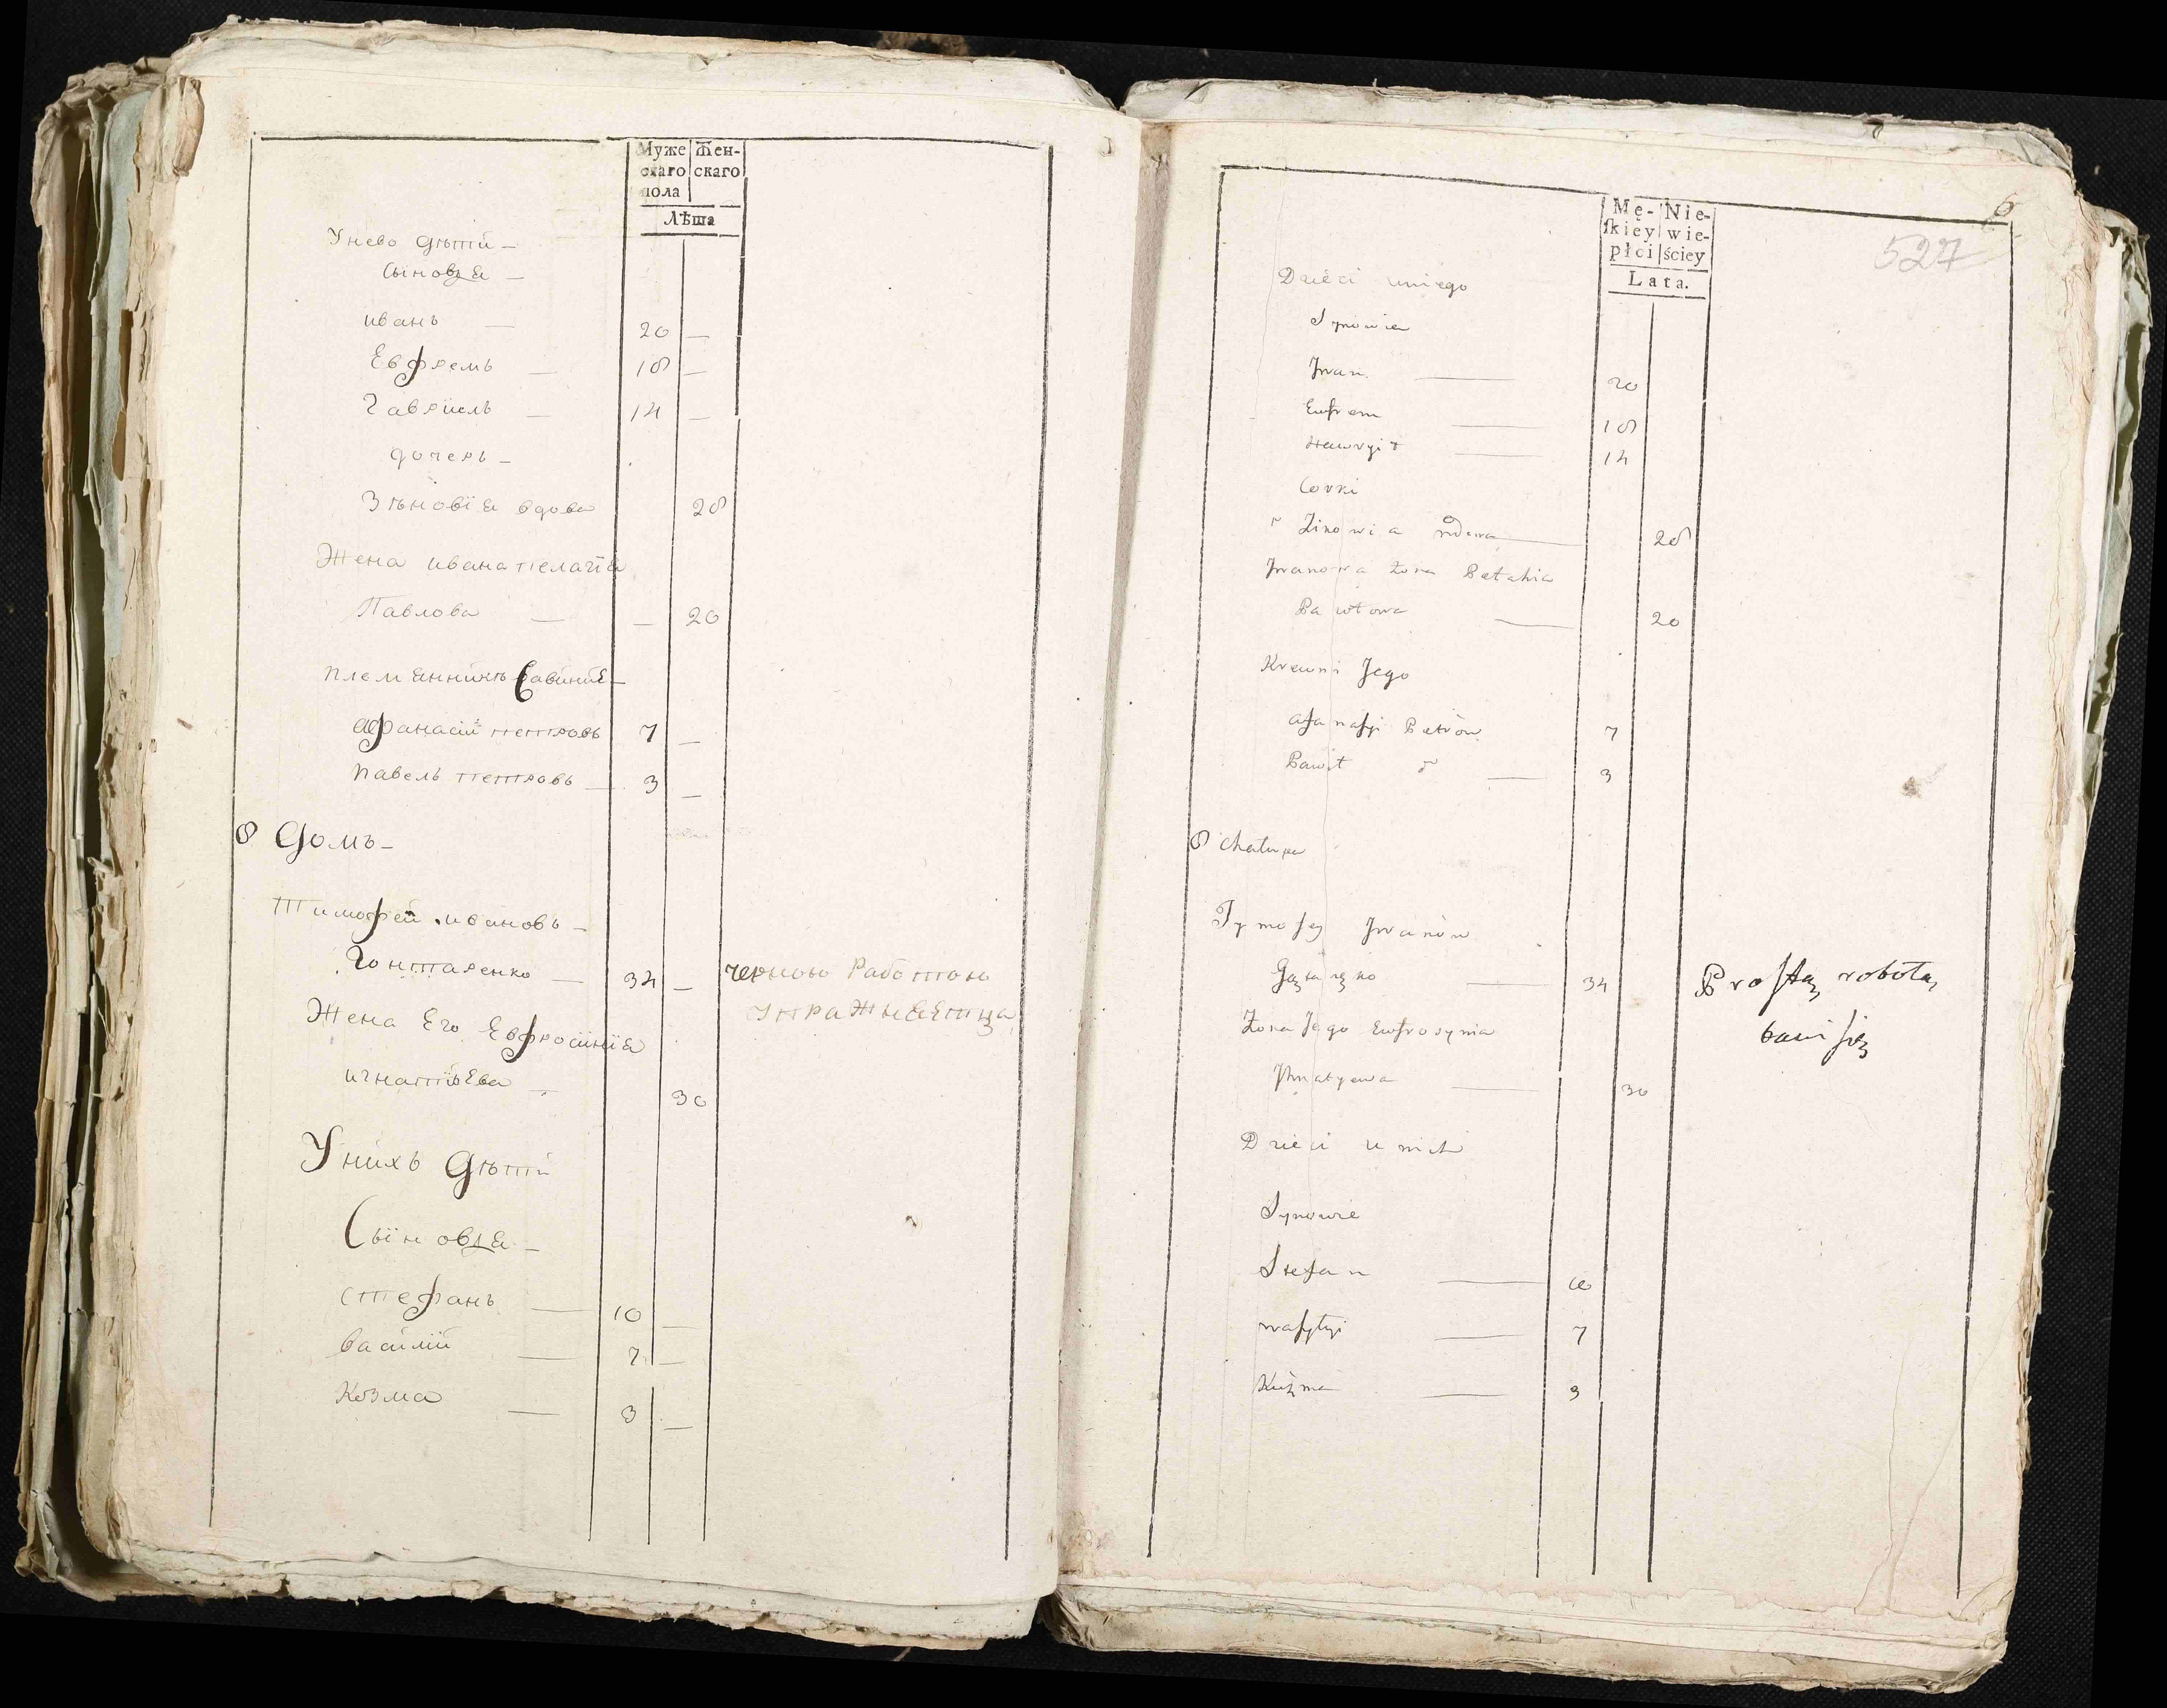 Муже Жен-
скаго скаго
пола
Лѣта
Унево дѣти —
Сыновья —
иванъ — 20 —
Евфремъ — 18 —
Гаврiелъ — 14 —
дочерь —
Зѣновiя вдова 28
Жена ивана пелагiя
Павлова — — 20
племянники Савины —
афанасiй петровъ 7 —
павелъ петровъ — 3 —
8 Домъ —
Тимофей ивановъ —
Гонтаренко — 34 — черною работою
упражняетца
Жена Его Евфросинiя
игнатьева — 30
Унихъ дѣти
Сыновья —
стефанъ — 10 —
василiй — 7 —
Козма — 3 —
6
527
Mę- Nie-
ſkiey wie-
płci ściey
Lata.
Dzieci uniego
Synowie
Jwan. — 20
Eufrem — 18
Hawryił — 14
Corki
Zinowia wdowa — 28
Jwanowa żona Pełahia
Pawłowa — 20
Krewni Jego
afanaſyi Petrów 7
Paweł — 3
8 chałupa
Tymofey Jwanów
— 34 Proſtą robotą
bawi ſię
Żona Jego Eufrosynia
Jhnatyewa — 30
Dzieci u nich
Synowie
Stefan — 10
waſyłyi — 7
Kuźma — 3